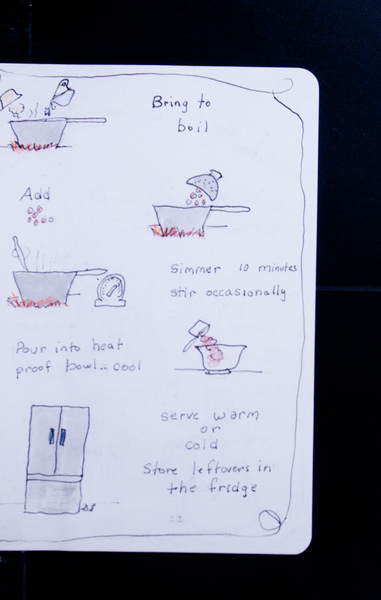 Bring to
boil
Add
Simmer 10 minutes
stir occasionally
Pour into heat
proof bowl.. cool
serve warm
or
cold
Store leftovers in
the fridge